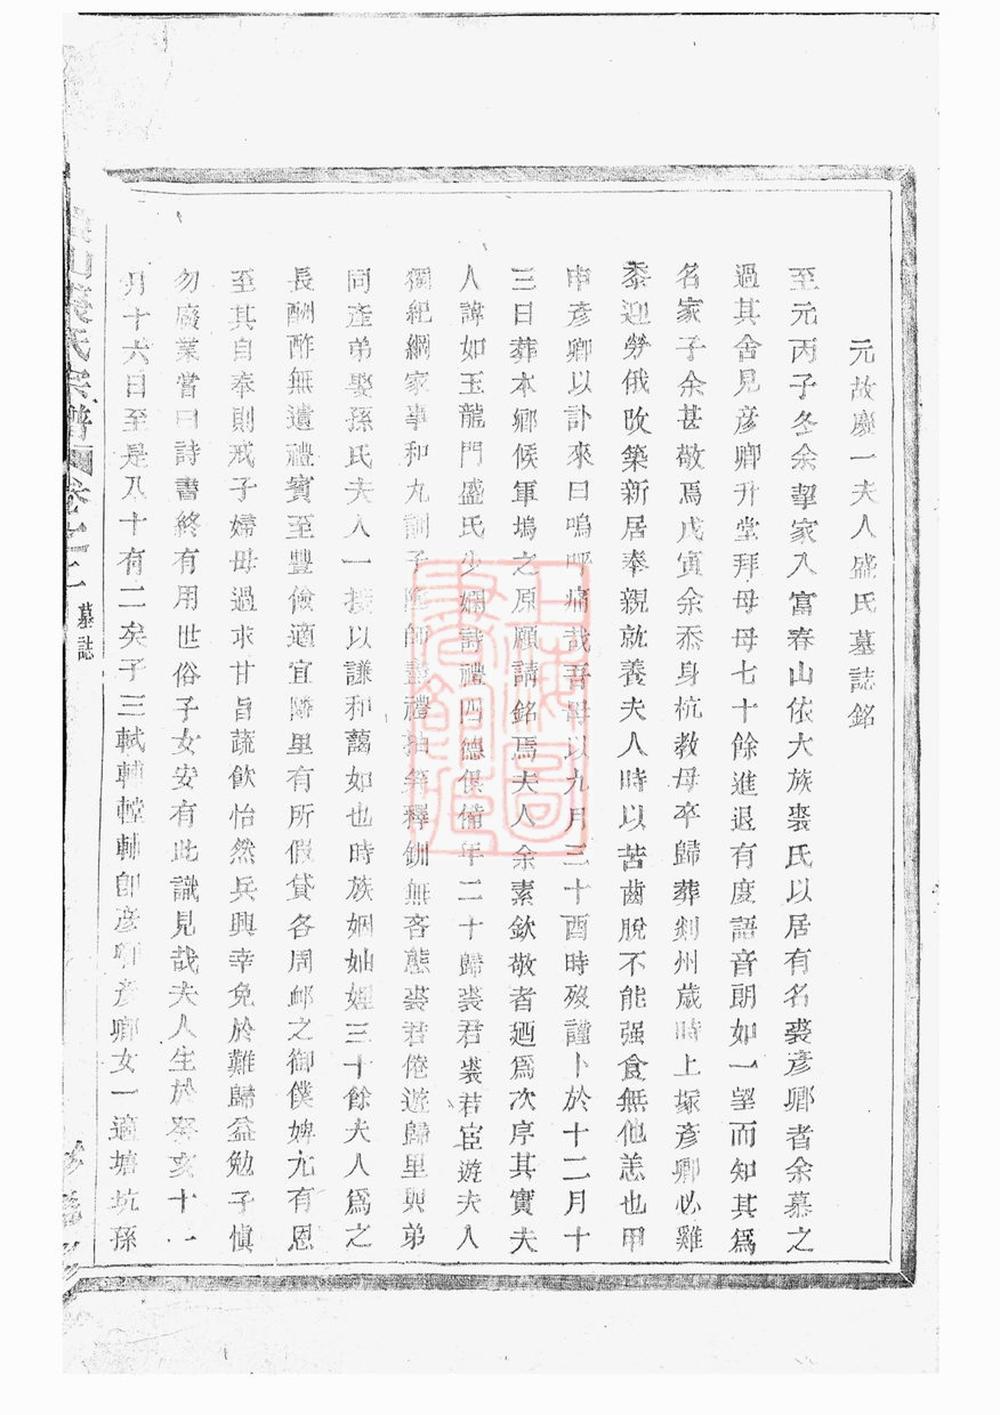 元故慶一夫人盛氏墓誌銘
至元丙子冬余挈家入富春山依大族裘氏以居有名裘彥卿者余慕之
過其舍見彥卿升堂拜母母七十餘進退有度語音朗如一望而知其爲
名家子余甚敬焉戊寅余忝身杭教母卒歸葬剡州歲時上塚彥卿必雞
黍迎勞俄改築新居奉親就養夫人時以苦齒脫不能强食無他恙也甲
申彥卿以訃來曰嗚呼痛哉吾母以九月三十酉時歿謹卜於十二月十
三日葬本鄉候軍塢之原願請銘焉夫人余素欽敬者廼爲次序其實夫
人諱如玉龍門盛氏少嫻詩禮四德俱備年二十歸裘君裘君宦遊夫人
獨紀綱家事和九訓子隆師盡禮抽簪釋釧無吝態裘君倦遊歸里與弟
同產弟娶孫氏夫人一接以謙和藹如也時族姻妯娌三十餘夫人爲之
長酬酢無遺禮賓至豐儉適宜隣里有所假貸各周卹之御僕婢尤有恩
至其自奉則戒子婦毋過求甘旨蔬飲怡然兵興幸免於難歸益勉子愼
勿廢業嘗曰詩書終有用世俗子女安有此識見哉夫人生於辛亥十一
月十六日至是八十有二矣子三軾輔𨎋輔卽彥卿彥卿女一適塘坑孫
山裘氏宗譜
卷之二
墓誌